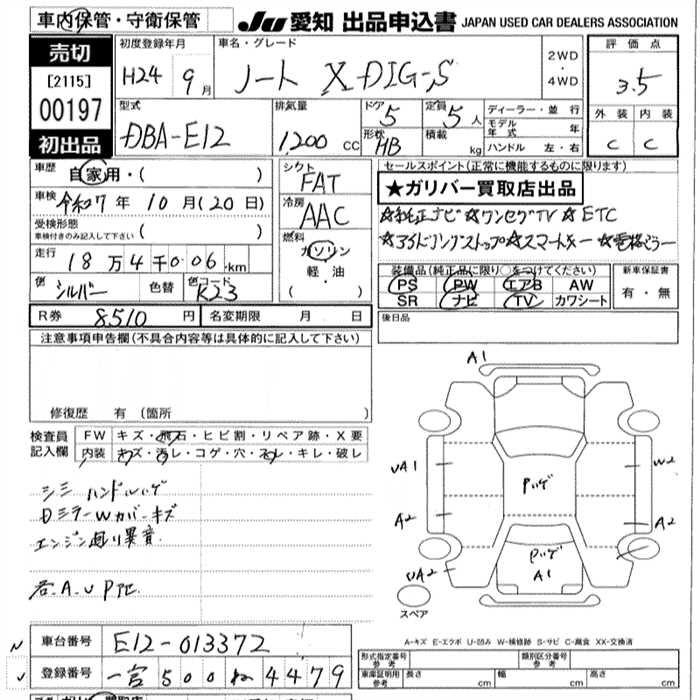 車内保管・守衛保管
JU 愛知 出品申込書 JAPAN USED CAR DEALERS ASSOCIATION
売切
[2115]
00197
初出品
初度登録年月 車名・グレード
H24 9月 ノート X DIG-S
2WD
・
4WD
評価点
3.5
外装 内装
C C
型式 排気量 ドア 定員 ディーラー・並 行
DBA-E12 1,200 CC 5 5人
形状 積載 モデル年式 年
HB kg ハンドル 左・右
車歴 自家用・( )
車検 令和7年10月(20日)
受検形態
車検付きのみ記入して下さい ( )
走行 18万4千006km
色 シルバー 色替 色コード K23
シフト
FAT
冷房
AAC
燃料
ガソリン
軽・油
( )
セールスポイント(正常に機能するものに限ります)
★ガリバー買取店出品
☆純正ナビ☆ワンセグTV ☆ETC
☆アイドリングストップ☆スマートキー
装備品(純正品に限り○をつけてください)
PS PW エアB AW
SR ナビ TV カワシート
新車保証書
有・無
R券 8,510円 名変期限 月 日
後日品
注意事項申告欄(不具合内容等は具体的に記入して下さい)
修復歴 有(箇所 )
検査員
記入欄
FW キズ・飛石・ヒビ割・リペア跡・X要
内装 キズ・汚レ・コゲ・穴・スレ・キレ・破レ
シミ ハンドルハゲ
Dミラー Wカバーキズ
エンジン廻り異音
A1
UA1
W2
Pハゲ
A2
A2
Pハゲ
A1
UA2
スペア
A-キズ E-エクボ U-凹み W-補修跡 S-サビ C-腐食 XX-交換済
車台番号 E12-013372
登録番号 一宮 500 ね 4479
形式指定番号 参考 類別区分番号 参考
車庫証明用 参考 長さ cm 幅 cm 高さ cm